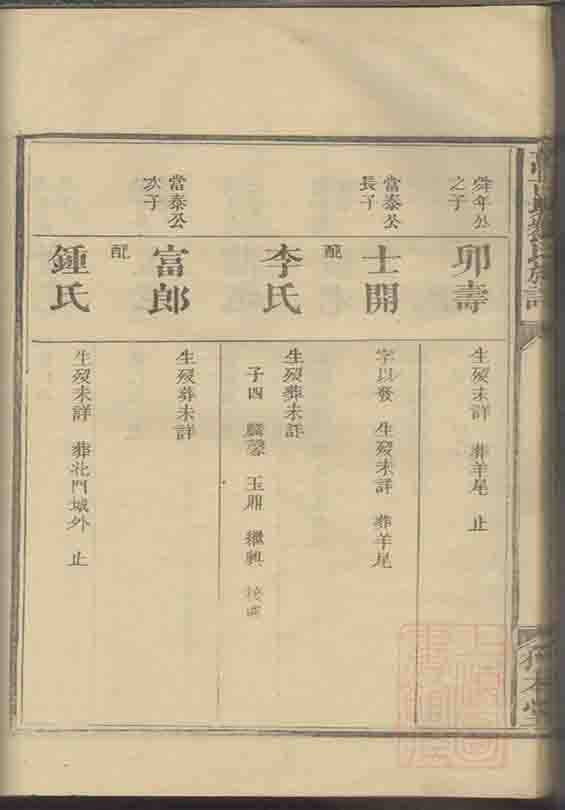 舜年公
之子
卯壽
生歿未詳 葬羊尾 止
當泰公
長子
士開
字以發 生歿未詳 葬羊尾
配
李氏
生歿葬未詳
子四 麟馨 玉鼎 繼興
當泰公
次子
富郎
生歿葬未詳
配
鍾氏
生歿未詳 葬北門城外 止